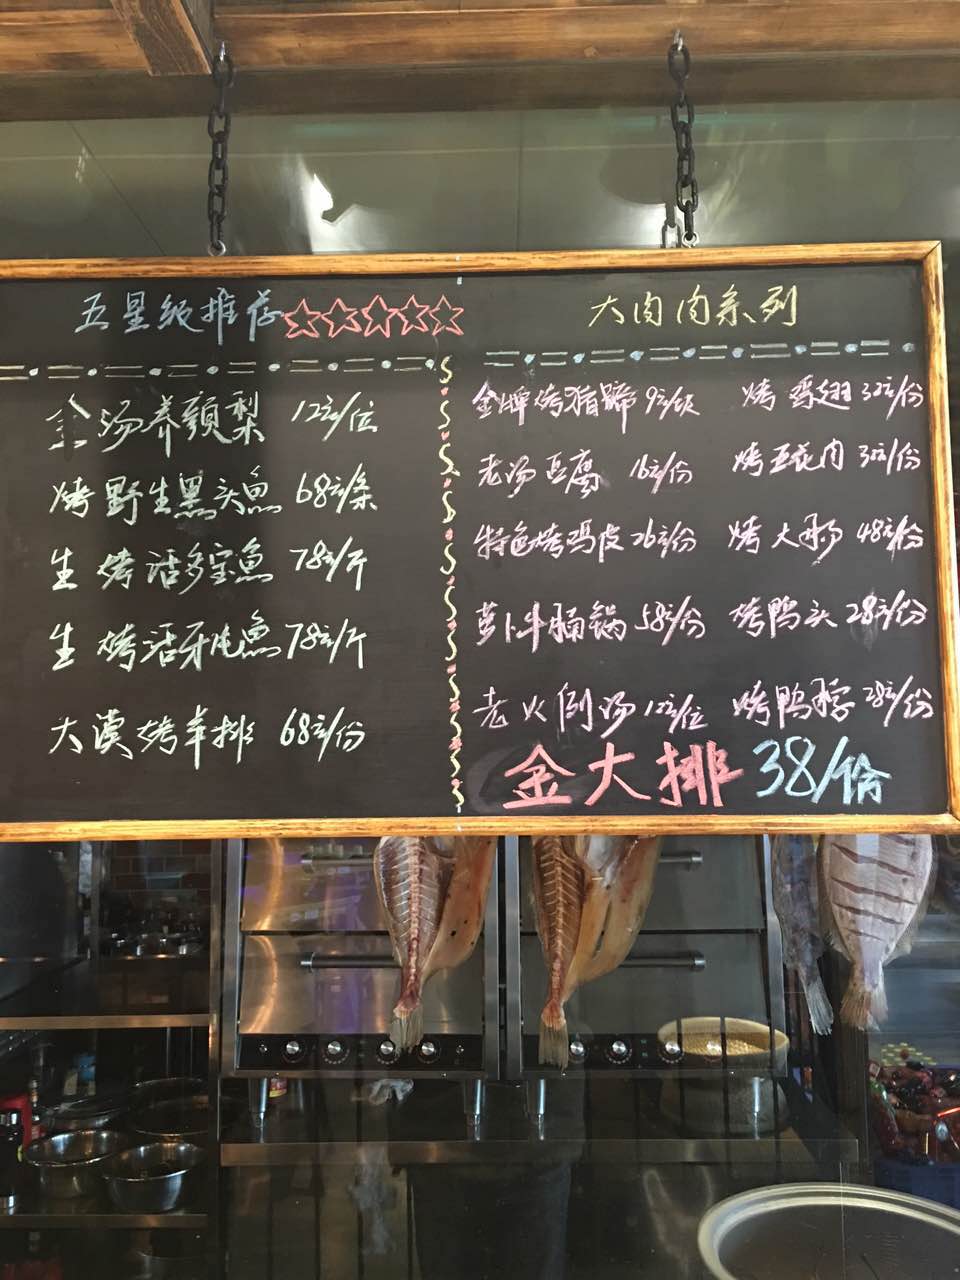 五星级推荐☆☆☆☆☆
金汤养颜梨 12元/位
烤野生黑头鱼 68元/条
生烤活多宝鱼 78元/斤
生烤活牙片鱼 78元/斤
大漠烤羊排 68元/份
大肉肉系列
金牌烤猪蹄 9元/
烤鸡翅 32元/份
老汤豆腐 16元/份
烤五花肉 32元/份
特色烤鸡皮 26元/份
烤大肠 48元/份
萝卜牛腩锅 58元/份
烤鸭头 28元/份
老火例汤 12元/位
烤鸭脖 28元/份
金大排 38/份